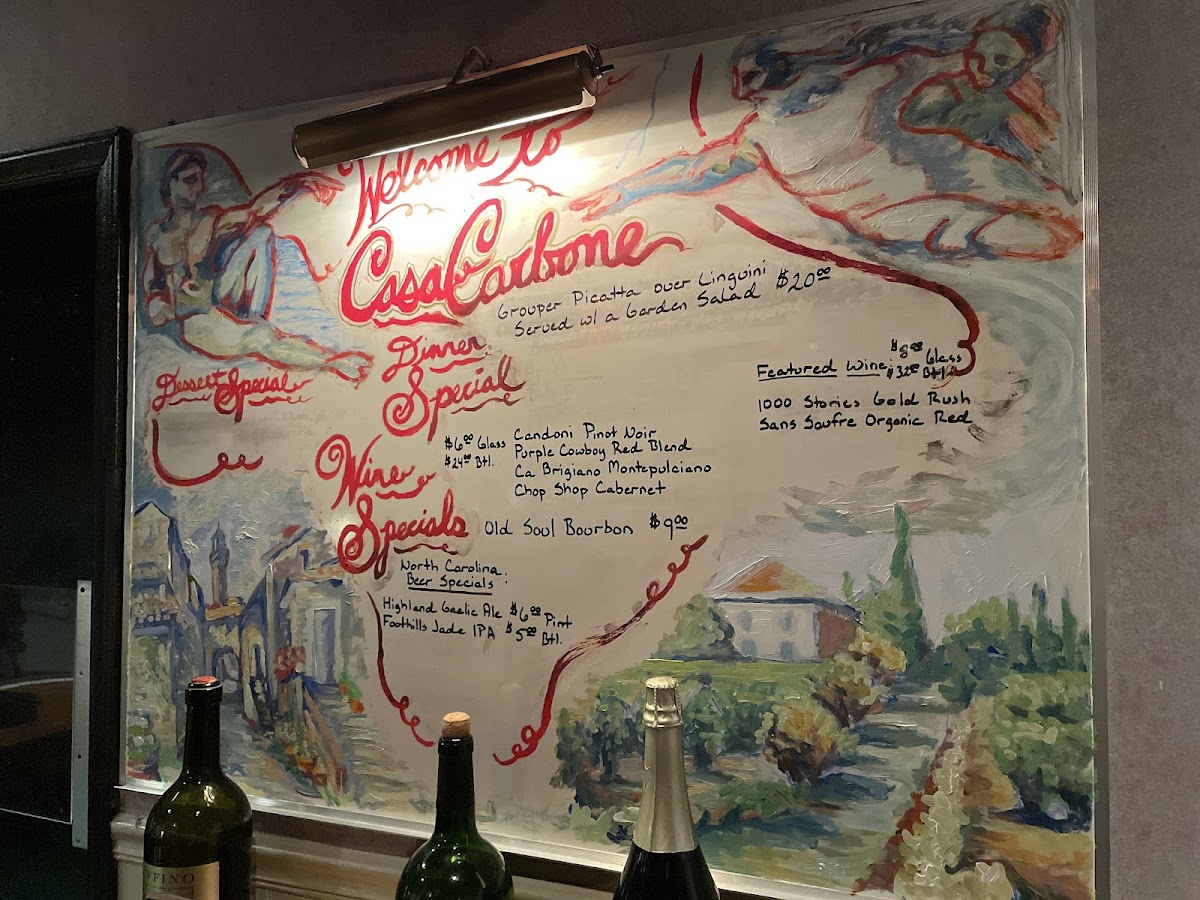 Welcome to
Casa Carbone
Grouper Picatta over Linguini $20.00
Served w/ a Garden Salad
Dinner
Special
Dessert
Special
Featured Wine: $8.00 Glass
$32.00 Btl.
1000 Stories Gold Rush
Sans Soufre Organic Red
Wine
Specials
$6.00 Glass
$24.00 Btl.
Candoni Pinot Noir
Purple Cowboy Red Blend
Ca Brigiano Montepulciano
Chop Shop Cabernet
Old Soul Bourbon $9.00
North Carolina
Beer Specials:
Highland Gaelic Ale $6.00 Pint
Foothills Jade IPA $5.00 Btl.
FFINO